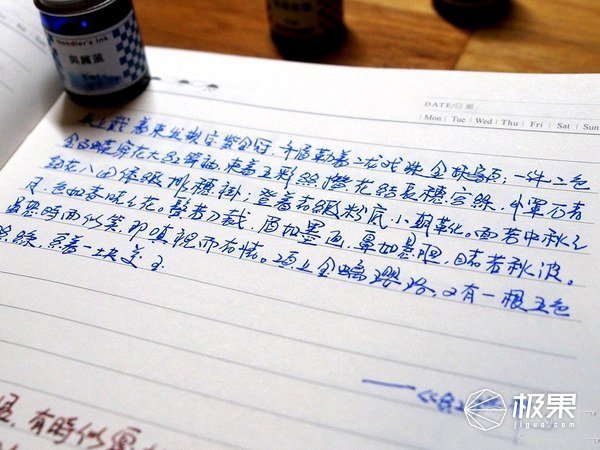 Noodler's Ink
5ml
DATE/日期
Mon Tue Wed Thu Fri Sat Sun
头上戴着束发嵌宝紫金冠，齐眉勒着二龙戏珠金抹额；一件二色
金百蝶穿花大红箭袖，束着五彩丝攒花结長穗宫絛，外罩石青
起花八团倭缎排穗掛；登着青缎粉底小朝靴。面若中秋之
月，色如春晓之花。鬓若刀裁，眉如墨画，鼻如悬胆，目若秋波。
虽怒時而似笑，即嗔視而有情。项上金螭璎珞，又有一根五色
丝絛，系着一块美玉
有時似
极果
jiguo.com